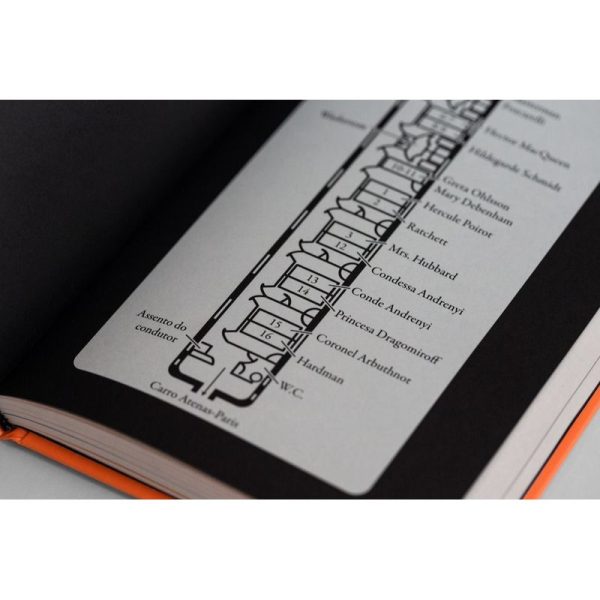 Hector MacQueen
Hildegarde Schmidt
Greta Ohlsson
Mary Debenham
10-11
Hercule Poirot
1
2
Ratchett
Mrs. Hubbard
3
12
Condessa Andrenyi
Conde Andrenyi
13
14
Princesa Dragomiroff
Coronel Arbuthnot
15
16
Hardman
W.C.
Assento do
condutor
Carro Atenas-Paris